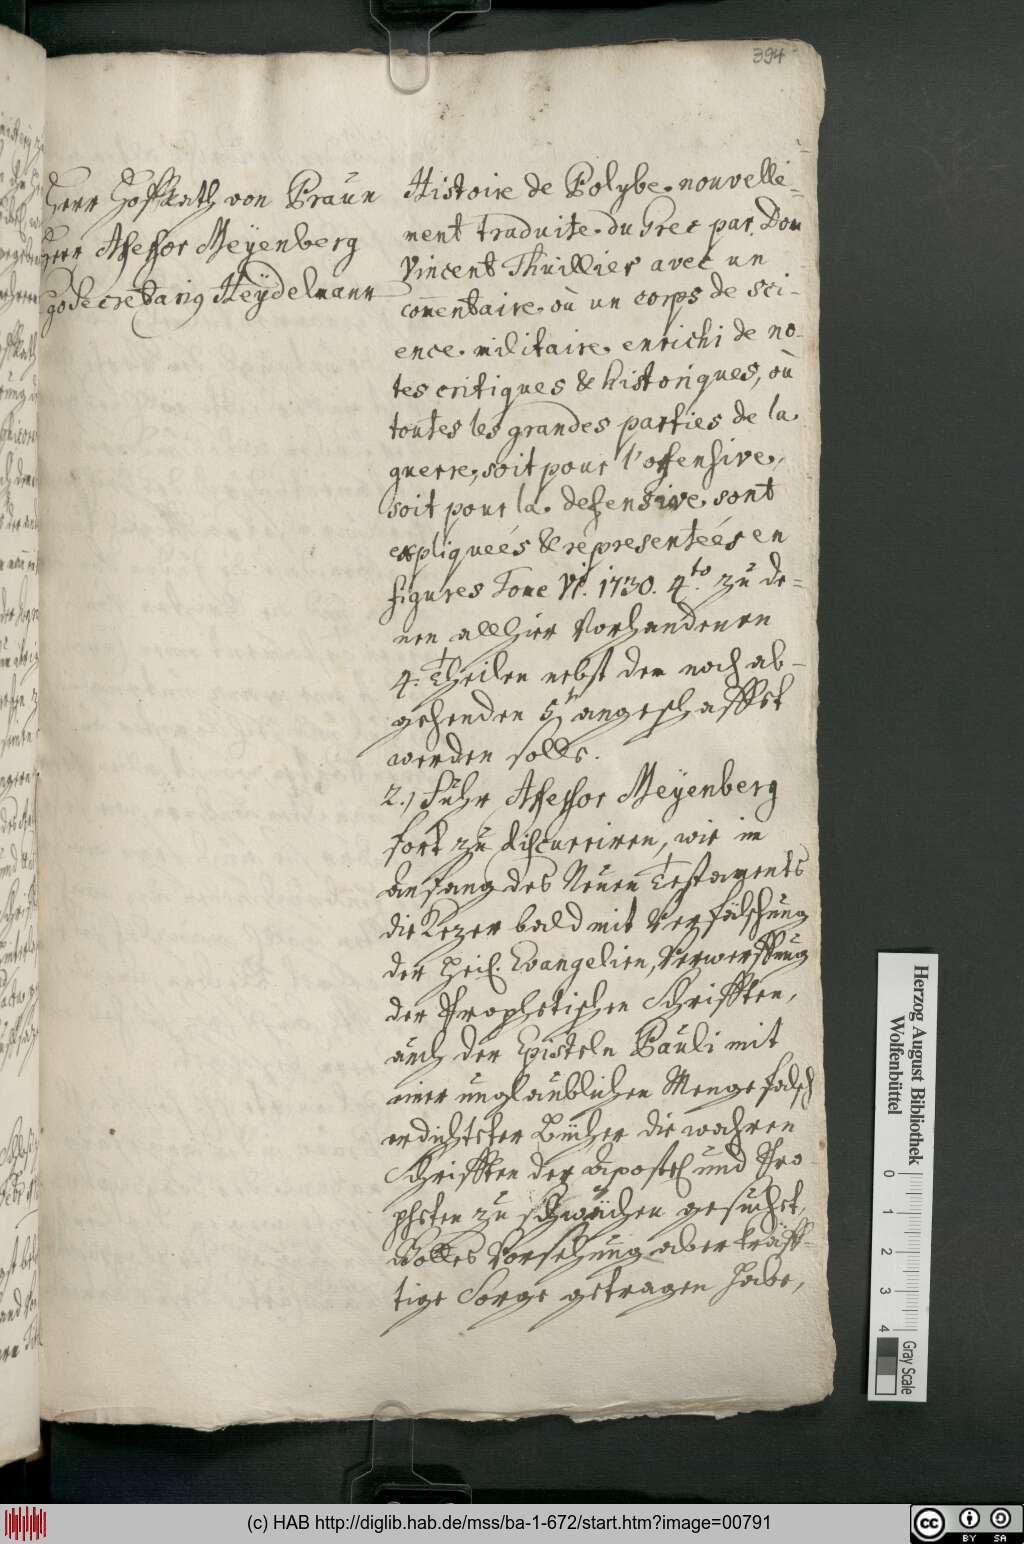 394
Herr HofRath von Praun
Herr Assessor Meÿenberg
Secretarius Heÿdelmann
Histoire de Polybe nouvelle-
ment traduite du Grec par Dom
Vincent Thuillier avec un
com̅entaire où un corps de sci-
ence militaire enrichi de no-
tes critiques & historiques, où
toutes les grandes parties de la
guerre, soit pour l'offensive,
soit pour la defensive sont
expliqueés & representeés en
figures Tome VI. 1730. 4.to zu de-
nen allhier vorhandenen
4. Theilen nebst dem noch ab-
gehenden 5t. angeschafft
werden solle.
2.) Fuhr Assessor Meÿenberg
fort zu discurriren, wie im
Anfang des Neuen Testaments
die Kezer bald mit Verfälschung
der Heil. Evangelien, Verwerffung
der Prophetischen Schrifften,
auch der Episteln Pauli mit
einer unglaublichen Menge falsch
erdichteter Bücher die wahren
Schrifften der Apostel und Pro-
pheten zu schwächen gesucht,
Gottes Vorsehung aber kräff-
tige Sorge getragen habe,
Herzog August Bibliothek
Wolfenbüttel
0 1 2 3 4
Gray Scale
(c) HAB http://diglib.hab.de/mss/ba-1-672/start.htm?image=00791
cc BY SA